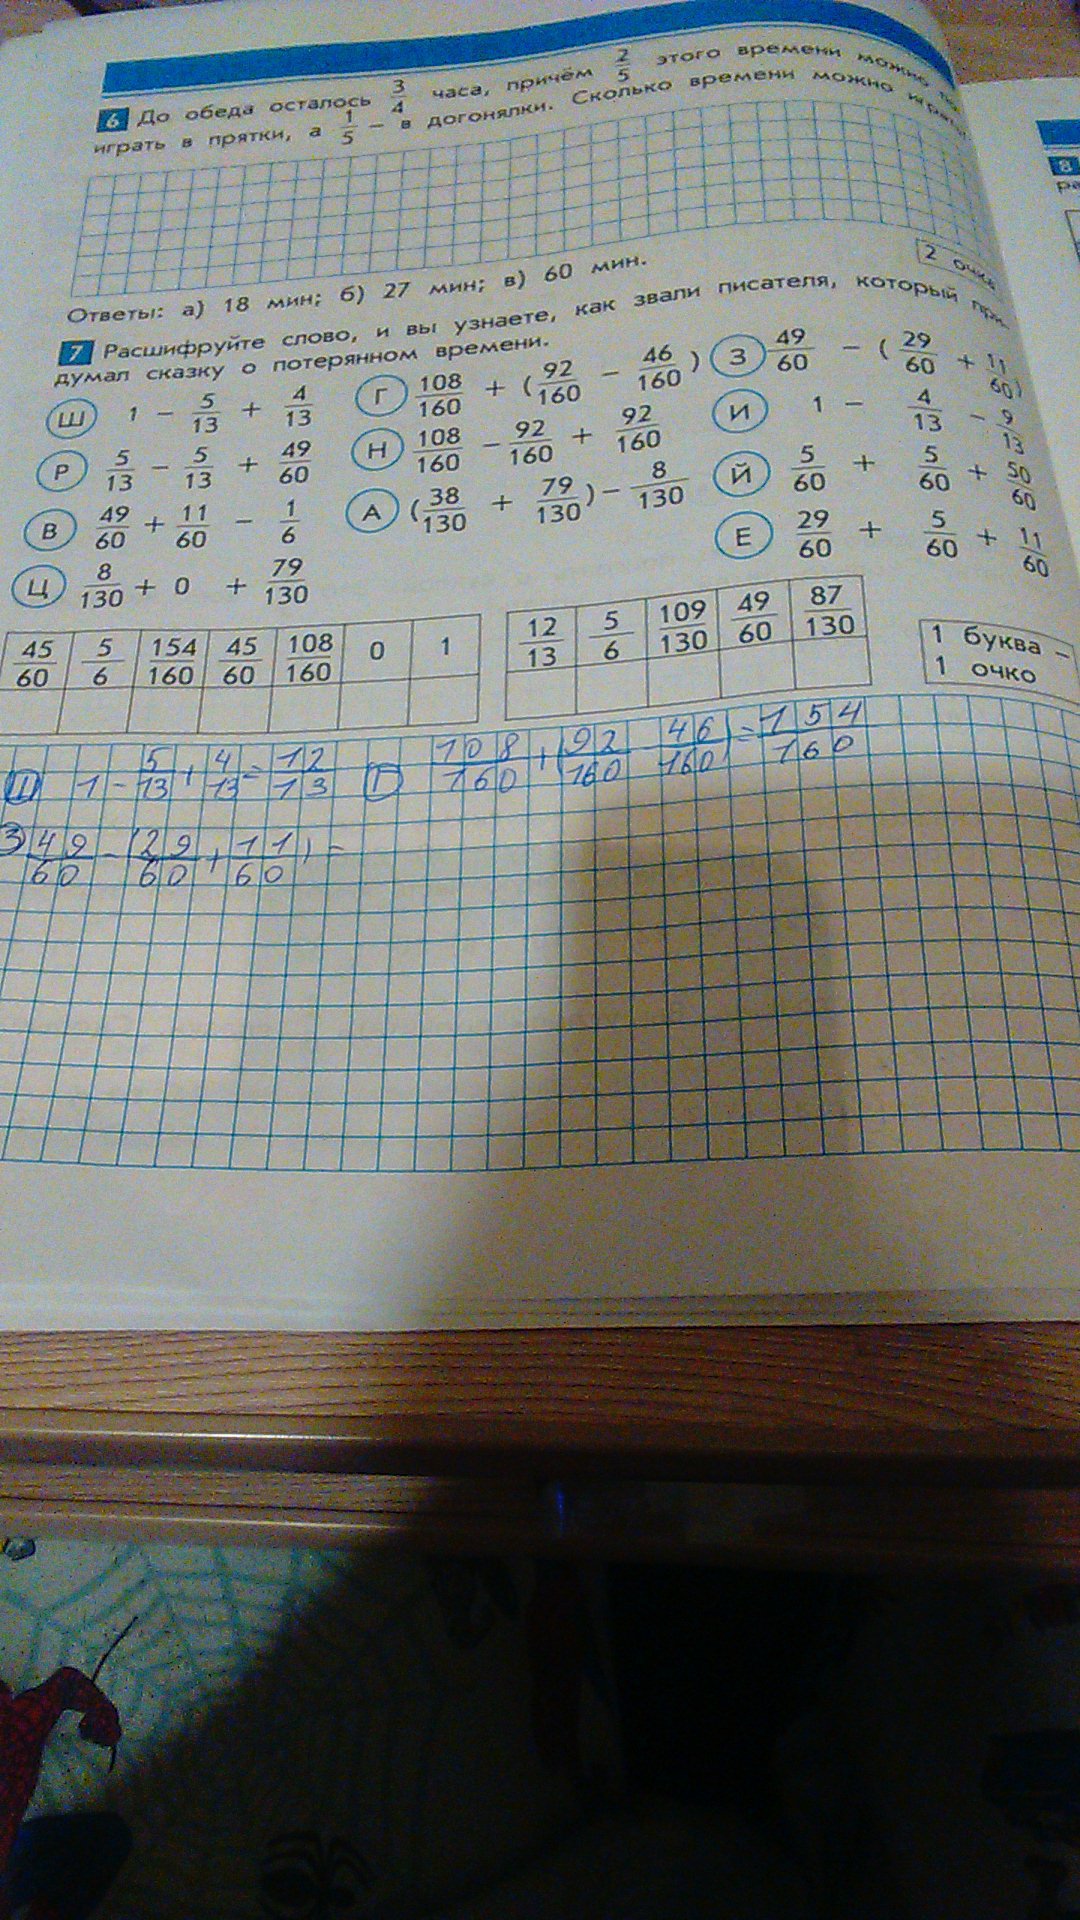 6 До обеда осталось 3/4 часа, причём 2/5 этого времени можно
играть в прятки, а 1/5 – в догонялки. Сколько времени можно играть?
2 очка
Ответы: а) 18 мин; б) 27 мин; в) 60 мин.
7 Расшифруйте слово, и вы узнаете, как звали писателя, который при-
думал сказку о потерянном времени.
Ш 1 – 5/13 + 4/13
Г 108/160 + (92/160 – 46/160)
З 49/60 – (29/60 + 11/60)
Р 5/13 – 5/13 + 49/60
Н 108/160 – 92/160 + 92/160
И 1 – 4/13 – 9/13
В 49/60 + 11/60 – 1/6
А (38/130 + 79/130) – 8/130
Й 5/60 + 5/60 + 50/60
Ц 8/130 + 0 + 79/130
Е 29/60 + 5/60 + 11/60
45/60 5/6 154/160 45/60 108/160 0 1
12/13 5/6 109/130 49/60 87/130
1 буква –
1 очко
Ш 1 – 5/13 + 4/13 = 12/13 Г 108/160 + (92/160 – 46/160) = 154/160
З 49/60 – (29/60 + 11/60) =
8